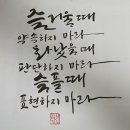 즐거울때
약속하지 마라
화났을때
판단하지 마라
슬플때
표현하지 마라